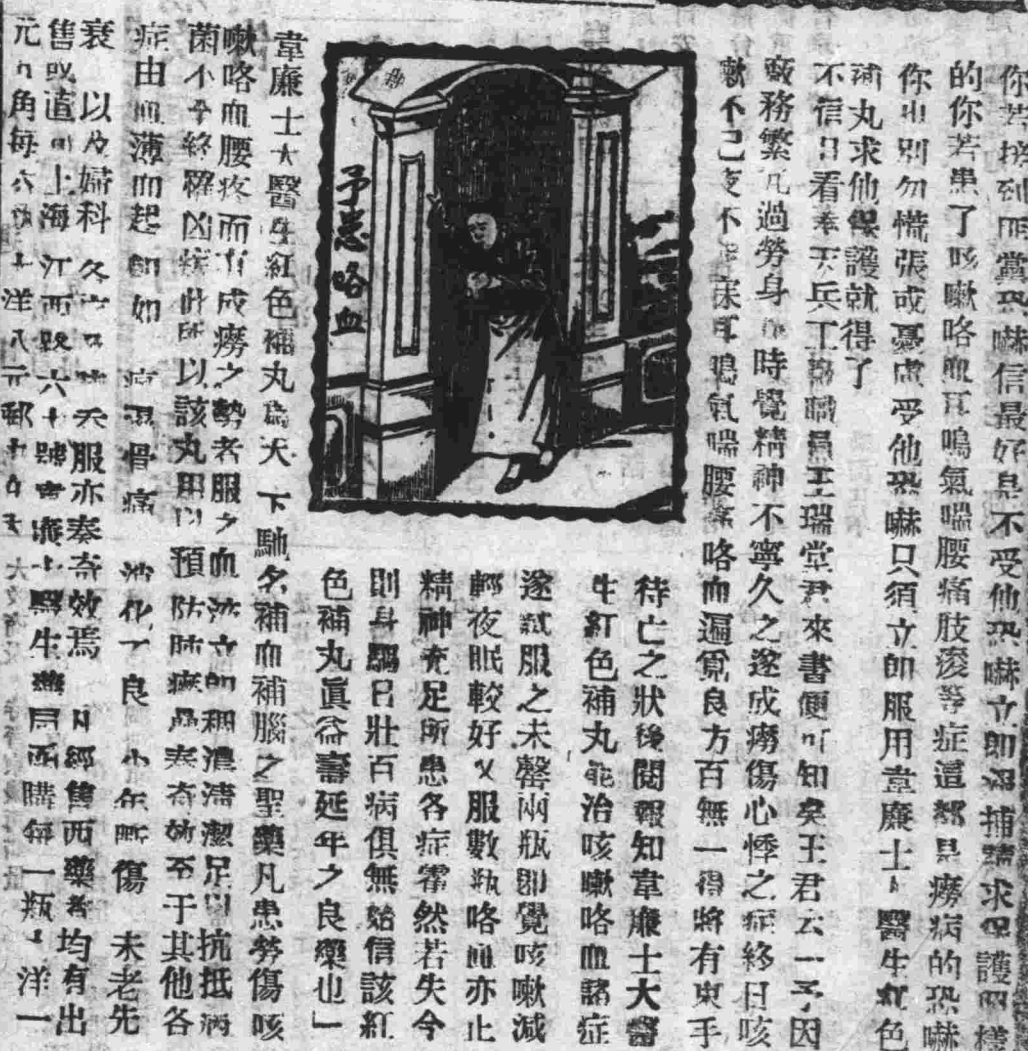 你若接到匪黨恐嚇信最好是不受他恐嚇立即報捕請求保護同樣
的你若患了咳嗽咯血耳鳴氣喘腰痛肢痠等症這都是癆病的恐嚇
你也別勿慌張或憂慮受他恐嚇只須立即服用韋廉士醫生紅色
補丸求他保護就得了
不信且看奉天兵工廠職員王瑞堂君來書便可知矣王君云「予因
廠務繁冗過勞身體時覺精神不寧久之遂成癆傷心悸之症終日咳
嗽不已夜不能寐耳鳴氣喘腰痛咯血遍覓良方百無一得將有束手
待亡之狀後閱報知韋廉士大醫
生紅色補丸能治咳嗽咯血諸症
遂試服之未罄兩瓶即覺咳嗽減
輕夜眠較好又服數瓶咯血亦止
精神充足所患各症霍然若失今
則身軀日壯百病俱無始信該紅
色補丸眞益壽延年之良藥也」
予患咯血
韋廉士大醫生紅色補丸為天下馳名補血補腦之聖藥凡患勞傷咳
嗽咯血腰疼而有成癆之勢者服之血液立即稠濃清潔足以抗抵病
菌不至終罹凶疾此所以該丸用以預防肺癆最奏奇效至于其他各
症由血薄而起即如 骨痛 消化不良 少年斲傷 未老先
衰 以及婦科 服亦奏奇效焉 凡經售西藥者均有出
售或直向上海江西路六十號韋廉士醫生藥局函購每一瓶大洋一
元 角每六瓶大洋八元郵力在